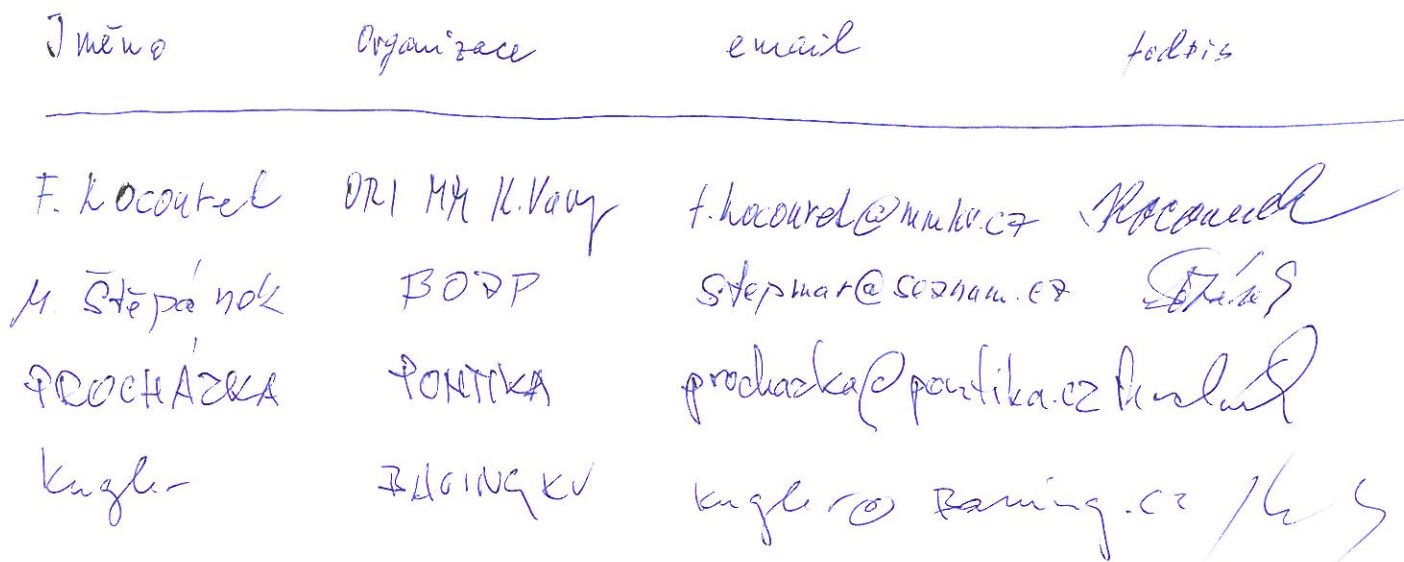 Jméno organizace email podpis
F. Kocourek ORI MM K.Vary f.kocourek@mmkv.cz
M. Štěpánek BOZP stepmar@seznam.cz
PROCHÁZKA PONTIKA prochazka@pontika.cz
Kugler